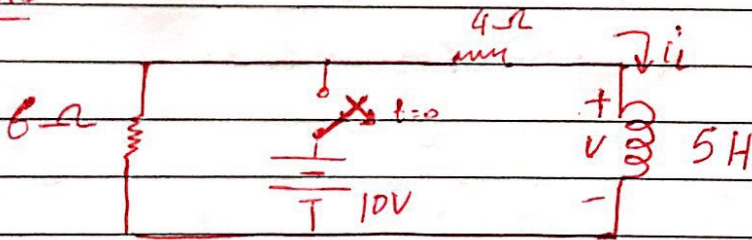 4Ω
i
6Ω
t=0
+
V
5H
10V
-